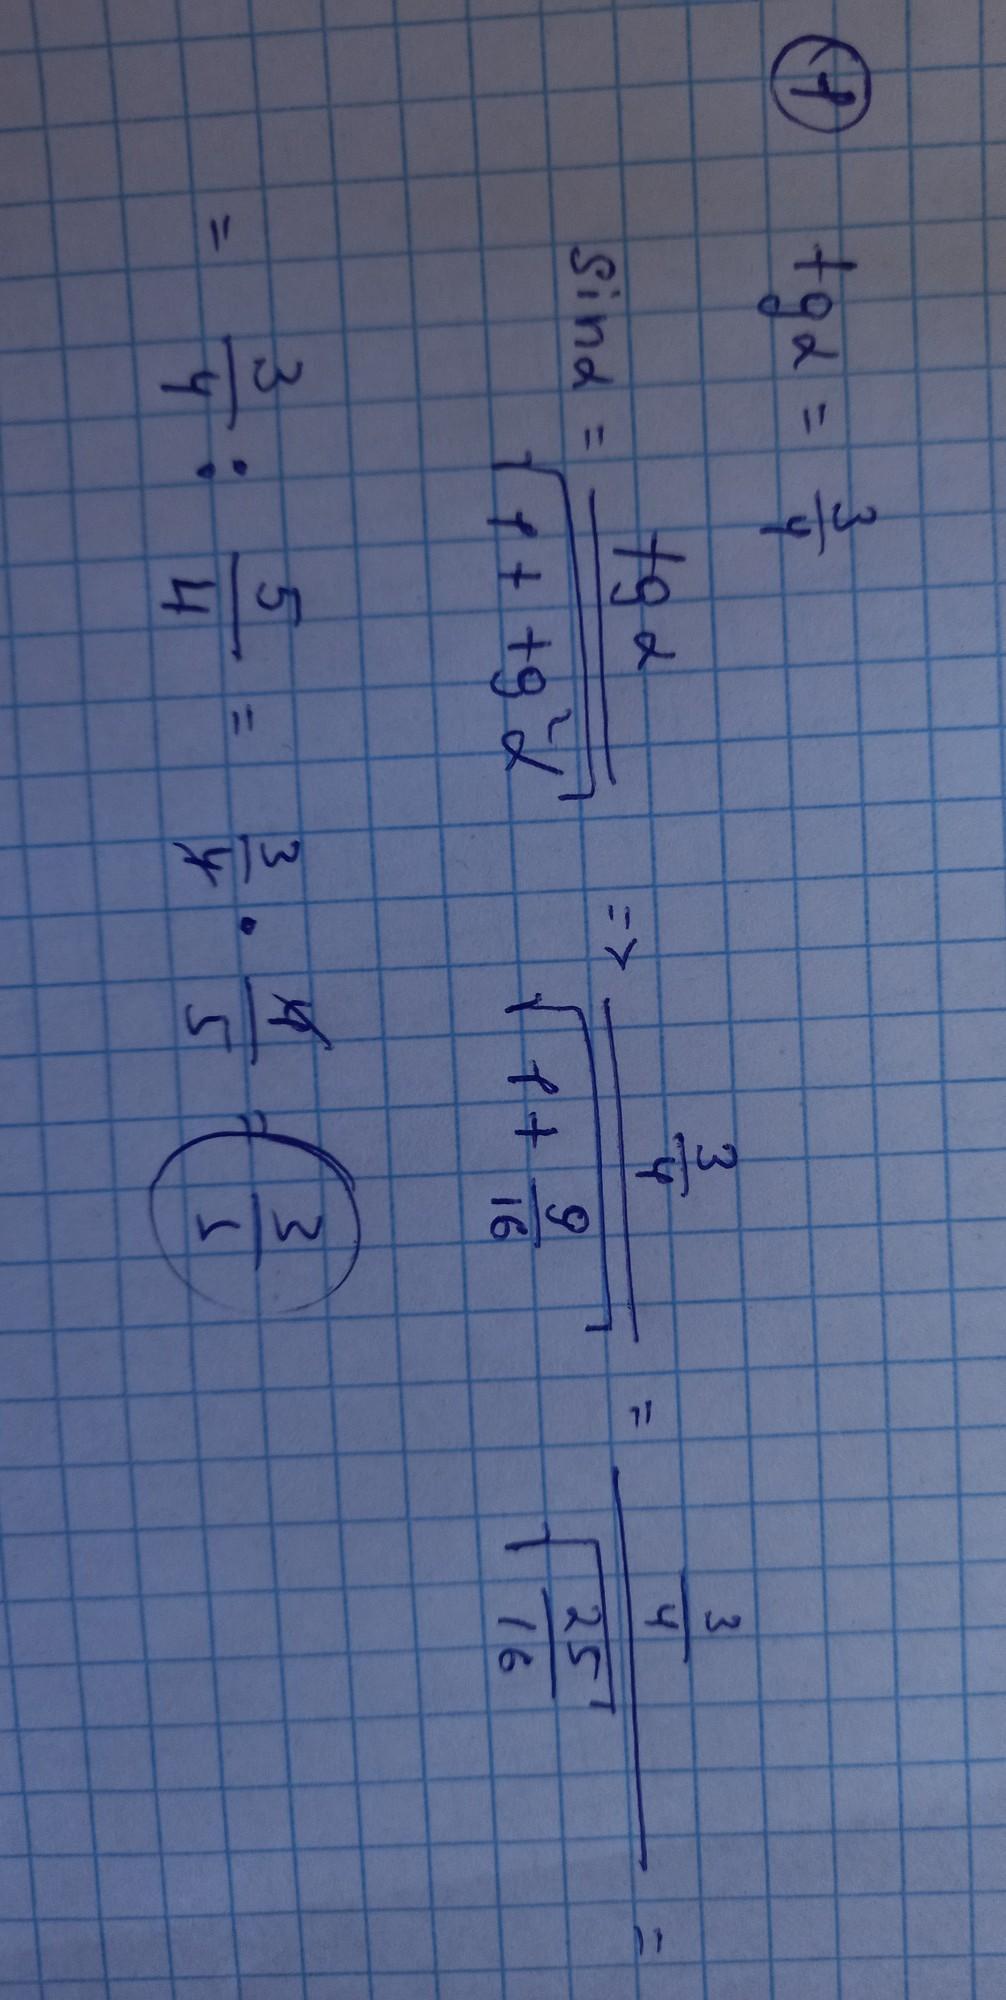 1
tg α = 3/4
sin α = tg α / √(1 + tg²α) => 3/4 / √(1 + 9/16) = 3/4 / √(25/16) =
= 3/4 : 5/4 = 3/4 · 4/5 = 3/5